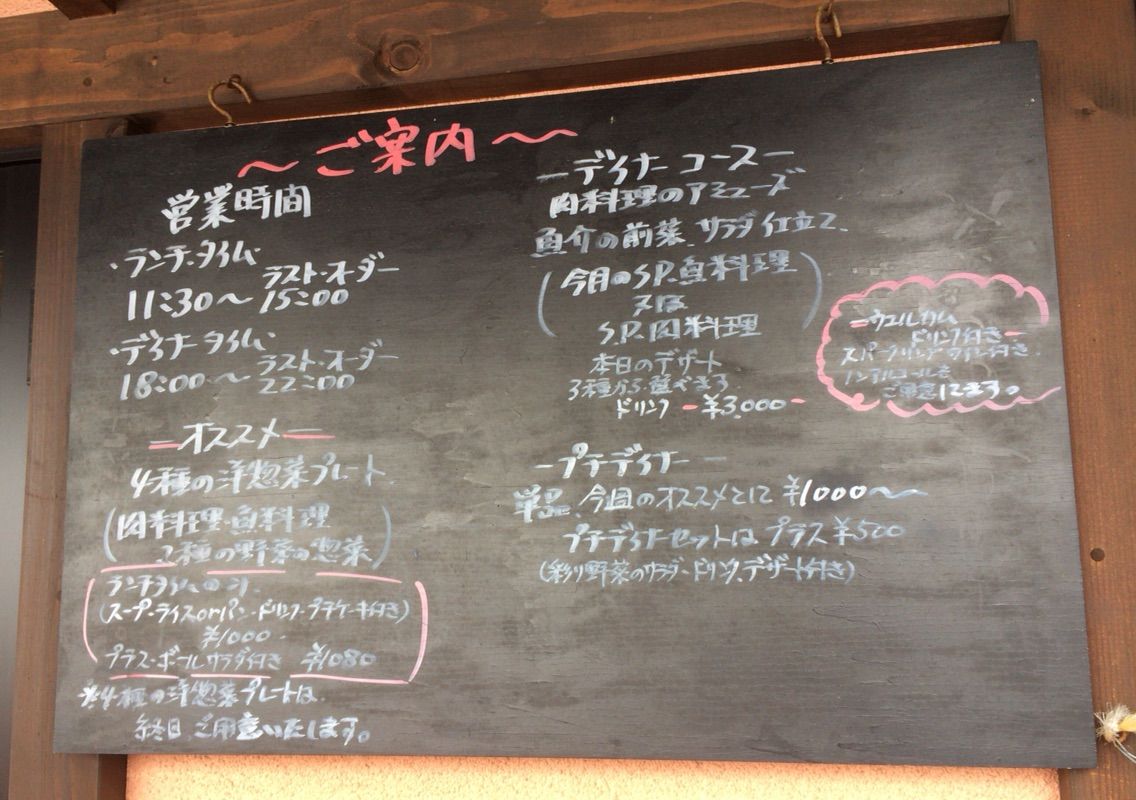 〜ご案内〜
営業時間
・ランチ・タイム
ラスト・オーダー
11:30〜15:00
・ディナータイム
ラスト・オーダー
18:00〜22:00
ーオススメー
4種の洋惣菜プレート
(肉料理・魚料理
2種の野菜の惣菜)
ランチタイムのみ
(スープ・ライスorパン・ドリンク・プチケーキ付き)
¥1000
プラス・ボールサラダ付き ¥1080
※4種の洋惣菜プレートは
終日、ご用意いたします。
ーディナーコースー
肉料理のアミューズ
魚介の前菜、サラダ仕立て
(今月のSP.魚料理
又は
S.P.肉料理)
本日のデザート
3種から選べます
ドリンク -¥3,000-
ーウエルカム
ドリンク付きー
スパークリングワイン付き
ノンアルコールも
ご用意してます。
ープチディナー
単品 今週のオススメとして ¥1000〜
プチディナーセットは プラス¥500
(彩り野菜のサラダ・ドリンク、デザート付き)